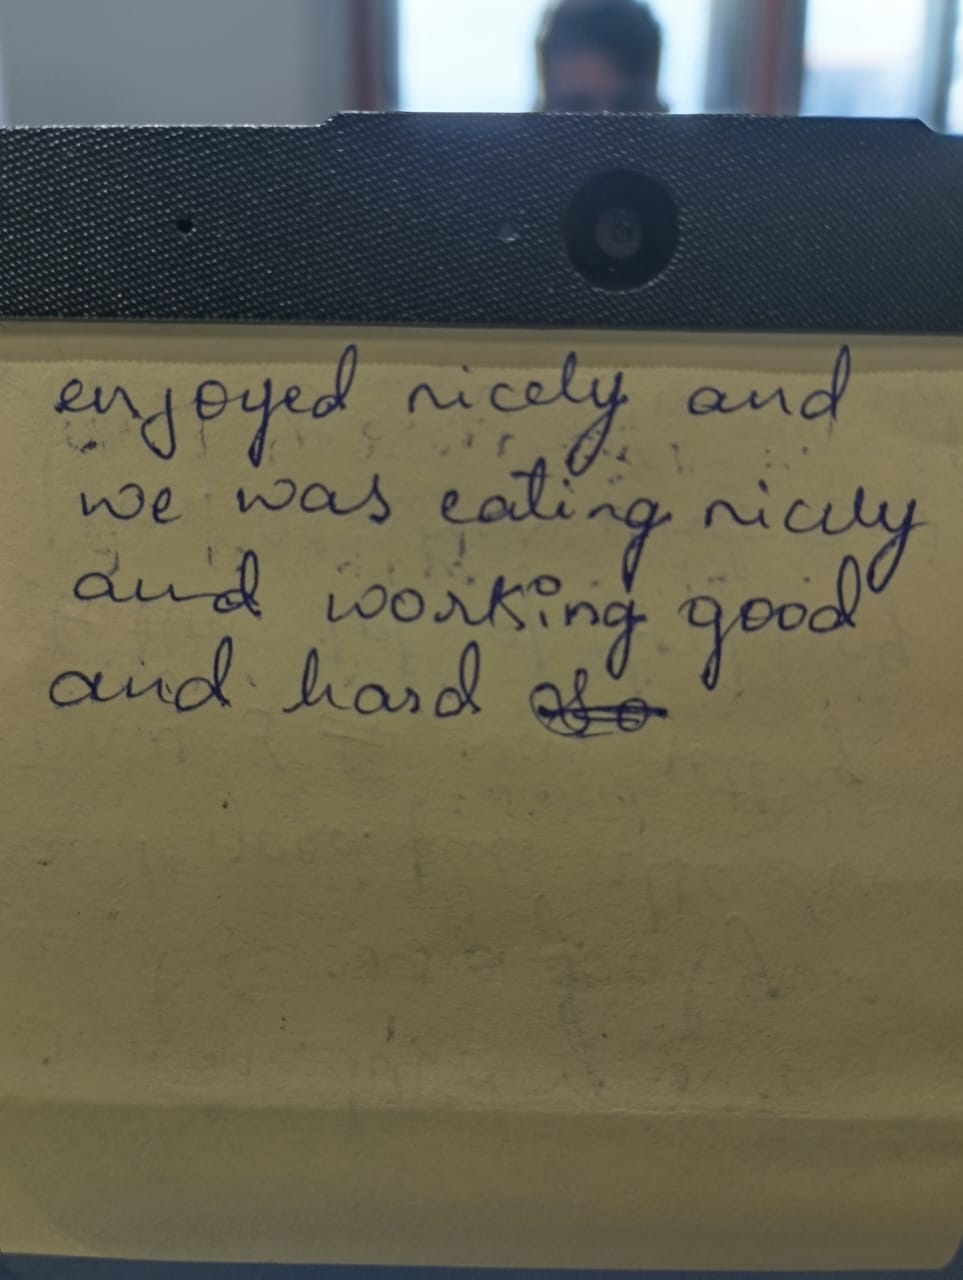 enjoyed nicely and
we was eating nicely
and working good
and hard